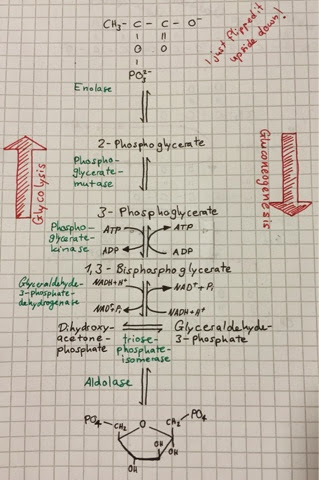 CH₃ - C - C - O⁻
O O
PO₃²⁻
I just flipped it
upside down!
Enolase
2-Phosphoglycerate
Phospho-
glycerate-
mutase
Glycolysis
Gluconeogenesis
3-Phosphoglycerate
Phospho-
glycerate-
kinase
ATP ATP
ADP ADP
1,3-Bisphosphoglycerate
Glyceraldehyde-
3-phosphate-
dehydrogenase
NADH+H⁺ NAD⁺+Pᵢ
NAD⁺Pᵢ NADH+H⁺
Dihydroxy-
acetone-
phosphate
triose-
phosphate-
isomerase
Glyceraldehyde-
3-Phosphate
Aldolase
PO₄ CH₂ O CH₂ PO₄
OH
OH OH